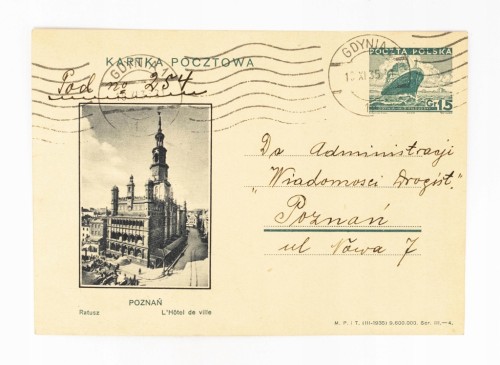 KARTKA POCZTOWA
Pod no 254
GDYNIA
GDYNIA
POCZTA POLSKA
Gr 15
Do Administracji
"Wiadomosci Drogist."
Poznań
ul Nowa 7
POZNAŃ
Ratusz L'Hôtel de ville
M. P. i T. (III-1935) 9.600.000. Ser. III.—4.